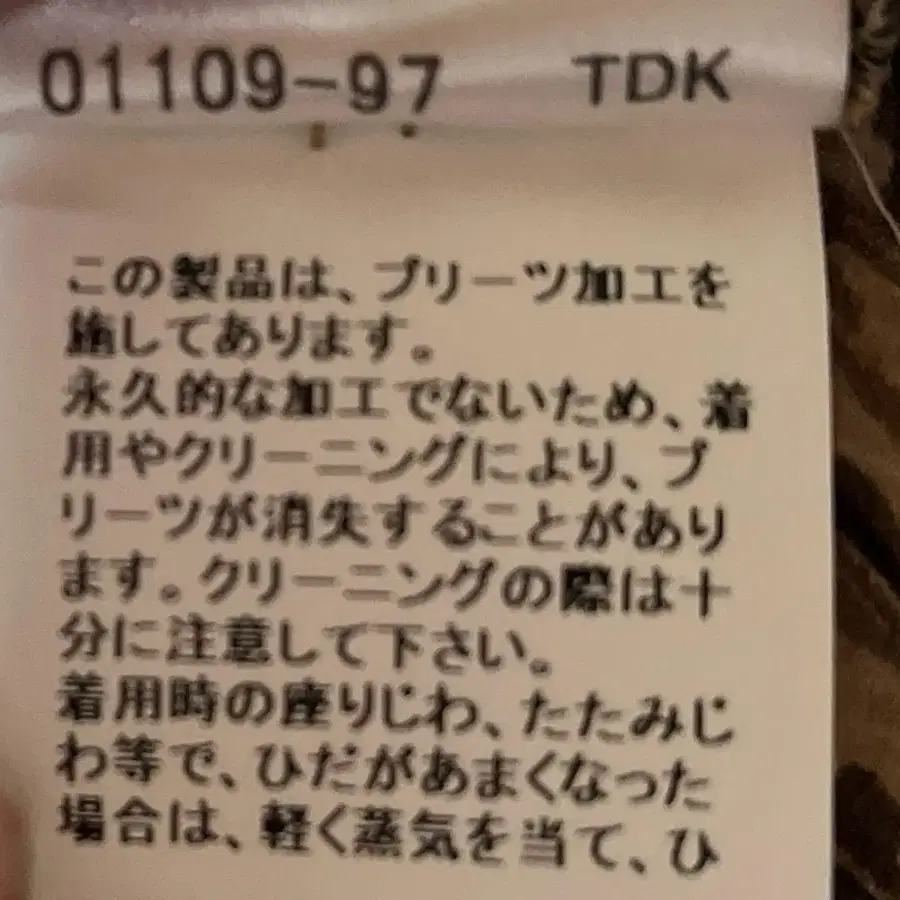 01109-97 TDK
この製品は、プリーツ加工を
施してあります。
永久的な加工でないため、着
用やクリーニングにより、プ
リーツが消失することがあり
ます。クリーニングの際は十
分に注意して下さい。
着用時の座りじわ、たたみじ
わ等で、ひだがあまくなった
場合は、軽く蒸気を当て、ひ